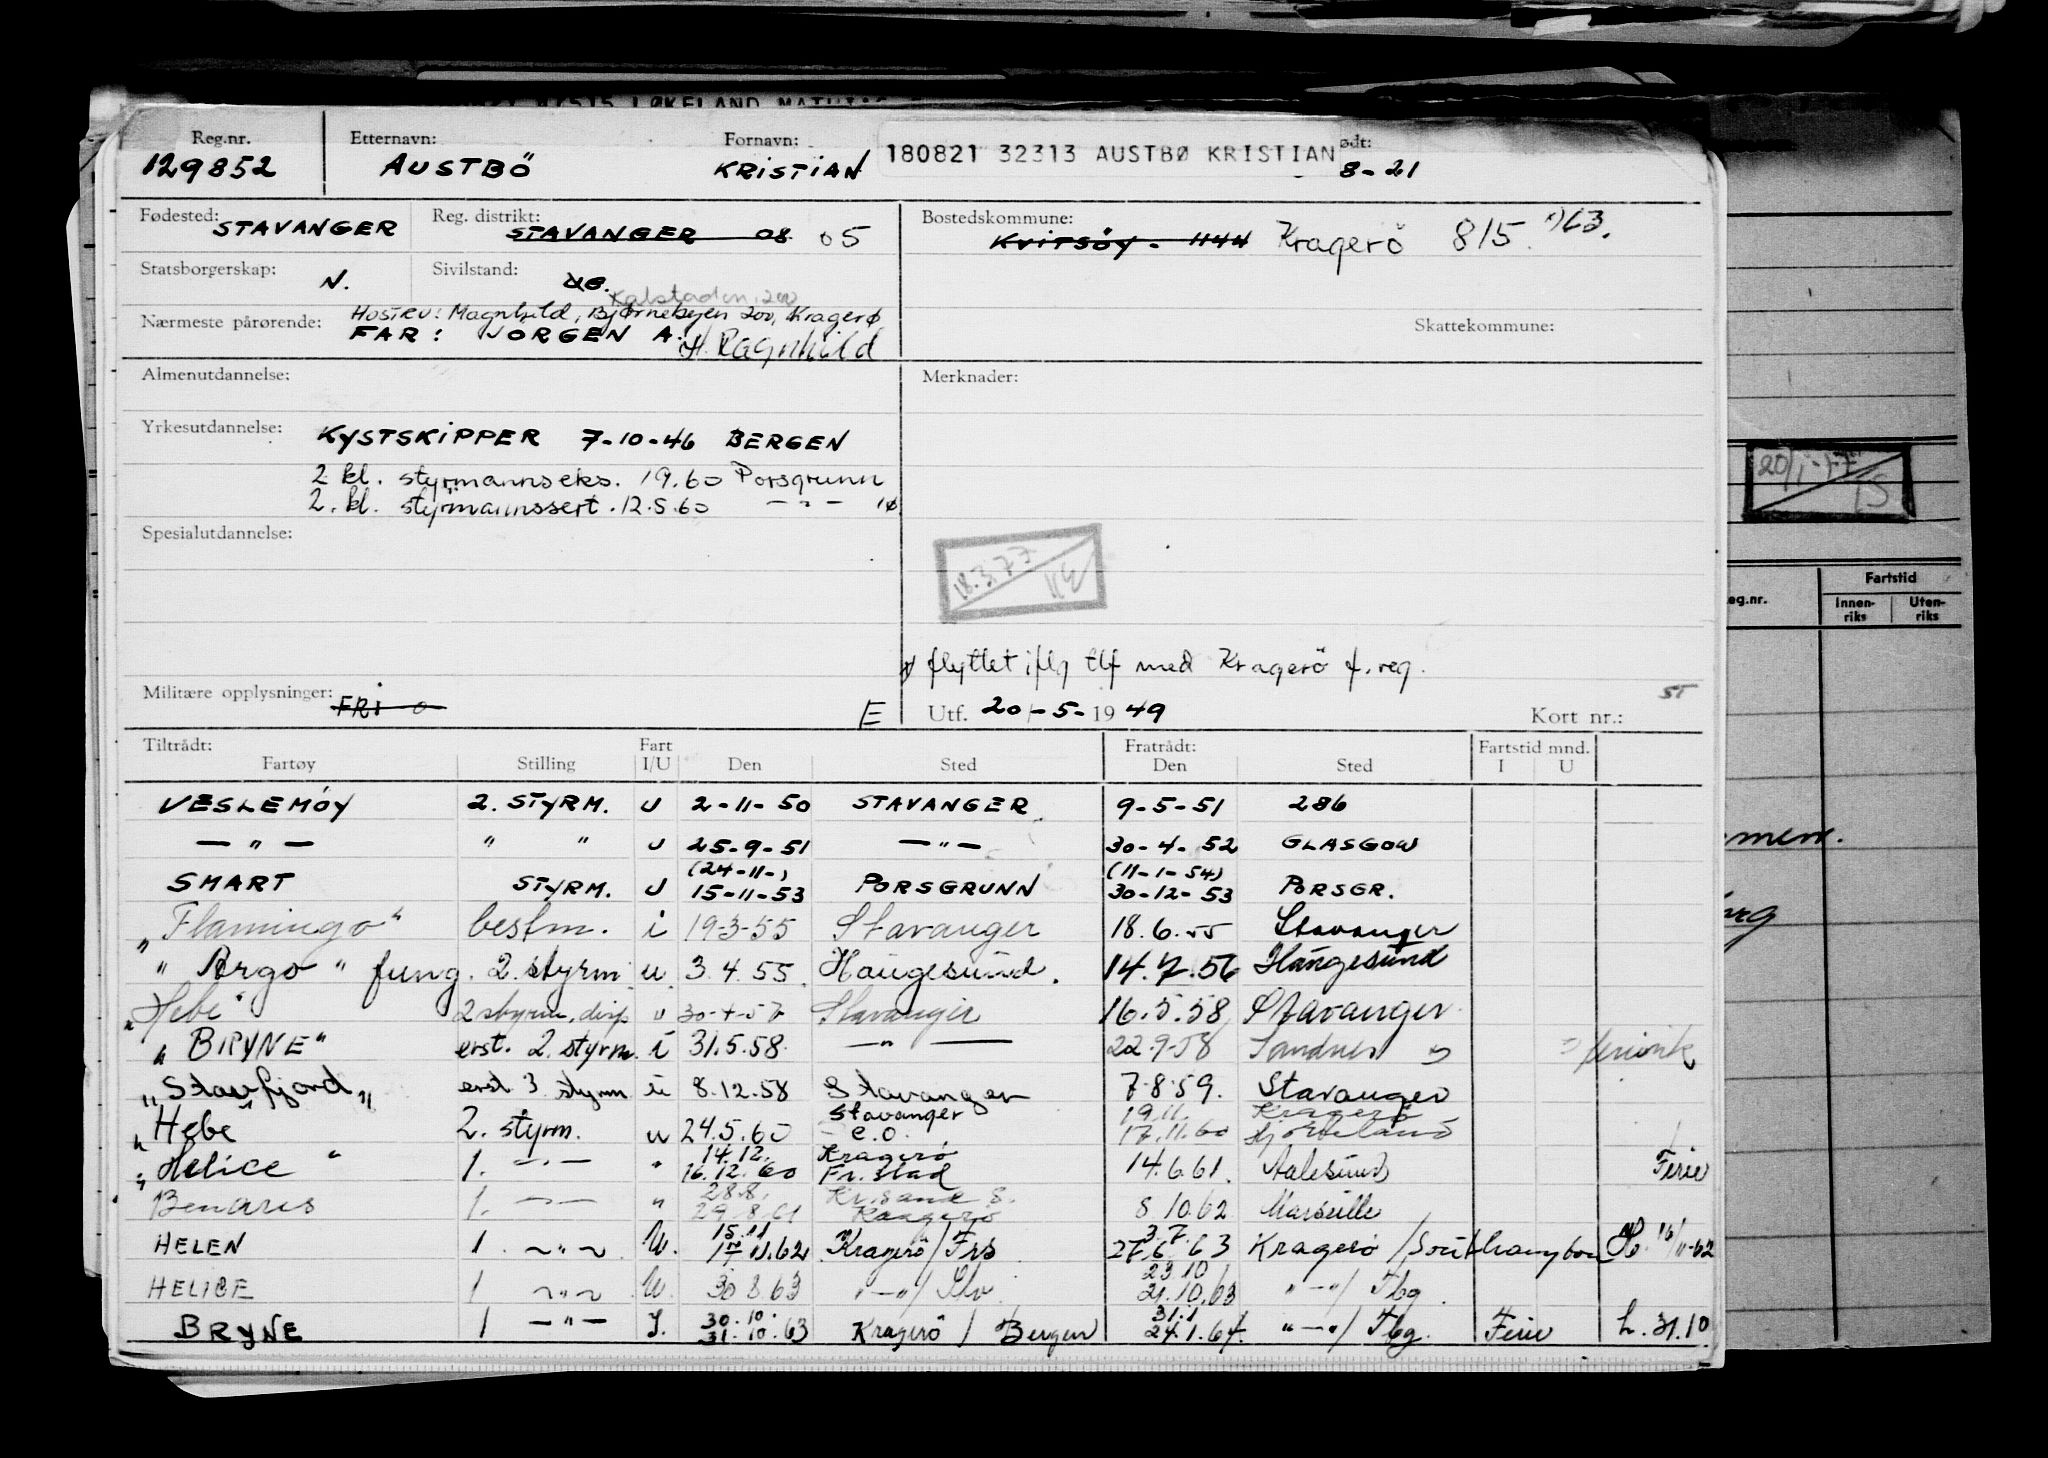 Reg.nr. Etternavn: Fornavn: 180821 32313 AUSTBØ KRISTIAN ødt:
129852 AUSTBÖ KRISTIAN 8-21
Fødested: STAVANGER Reg. distrikt: STAVANGER 08 05 Bostedskommune: KVITSÖY - 1144 Kragerö 815. 1)63.
Statsborgerskap: N. Sivilstand: UG.
Kalstaden, 200
Nærmeste pårørende: HUSTRU: Magnhild, Bjørnebyen 200, Kragerø Skattekommune:
FAR: JORGEN A. H. Ragnhild
Almenutdannelse: Merknader:
Yrkesutdannelse: KYSTSKIPPER 7-10-46 BERGEN
2 kl. styrmannseks. 19.60 Porsgrunn
2. kl. styrmannssert. 12.5.60 — " — 1ø
Spesialutdannelse:
18.3.77
flyttet iflg tlf med Kragerö f.reg.
Militære opplysninger: FRI E Utf. 20-5-1949 Kort nr.: ST
Tiltrådt: Fart Fratrådt: Fartstid mnd.
Fartøy Stilling I/U Den Sted Den Sted I U
VESLEMÖY 2. STYRM. U 2-11-50 STAVANGER 9-5-51 286
— " — " " U 25-9-51 — " — 30-4-52 GLASGOW
(24-11-) (11-1-54)
SMART STYRM. U 15-11-53 PORSGRUNN 30-12-53 PORSGR.
"Flamingo" bestm. i 19-3-55 Stavanger 18.6.55 Stavanger
"Argo" fung. 2. styrm u. 3.4.55 Haugesund. 14.7.56 Haugesund
"Hebe" 2 styrm, disp " 30-4-57 Stavanger 16.5.58 Stavanger
"BRYNE" erst. 2. styrm. i 31.5.58. — " — 22.9.58 Sandnes
"Stavfjord" erst 3 styrm u 8.12.58 Stavanger 7.8.59. Stavanger
Stavanger 19.11. Kragerö
"Hebe 2. styrm. u 24.5.60 e.o. 17.11.60
14.12. Kragerö
"Helice" 1. — " — " 16.12.60 Fr.stad 14.6.61. Aalesund Ferie
28.8. Kr.sand S.
Benaris 1. — " — " 29.8.61 Kragerö 8 10.62 Marseille
15.11 3.7.
HELEN 1. — " — U. 17 11.62 Kragerö / Frs 27.6.63 Kragerö / Southampton 16/11-62
23 10
HELICE 1 — " — U. 30 8.63 " — " / Slv 21.10.63 " — " / Tbg
30.10. 31.1
BRYNE 1 — " — I. 31.10.63 Kragerö / Bergen 24.1.64. " — " / Tbg. Ferie L. 31.10
eg.nr. Fartstid
Innen-riks Uten-riks